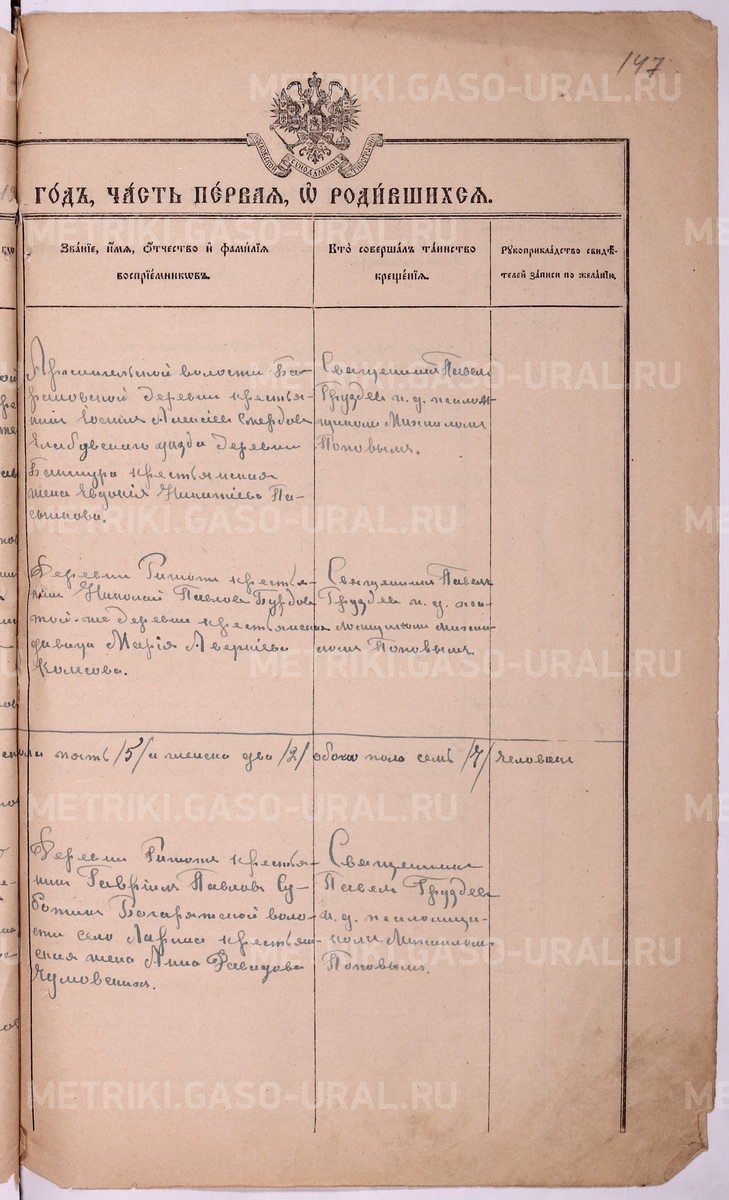 147
METRIKI.GASO-URAL.RU
годъ, часть первая, ѿ родившихся.
Званіе, имя, отчество и фамилія воспріемниковъ.
Кто совершалъ таинство крещенія.
Рукоприкладство свидѣтелей записи по желанію.
волости Ба-
деревни крестья-
нинъ Іосифъ Алексѣев
уѣзда деревни
крестьянская
жена Евдокія
Священникъ Павелъ
Груздевъ и. д. псалом-
щикомъ Михаиломъ
Поповымъ.
Деревни крестья-
нинъ Николай Павлов
той-же деревни крестьянская
дѣвица Марія Аверкіева
Колесова.
Священникъ Павелъ
Груздевъ и. д. пса-
ломщиком Михаи-
лом Поповымъ
пять /5/ и женска два /2/ обоего пола семь /7/ человекъ
Деревни крестья-
нинъ Гавріилъ Павловъ Су-
ботинъ Багарякской воло-
сти село Ларина крестьян-
ская жена Анна Давидова
Священникъ
Павелъ Груздевъ
и. д. псаломщи-
комъ Михаиломъ
Поповымъ.